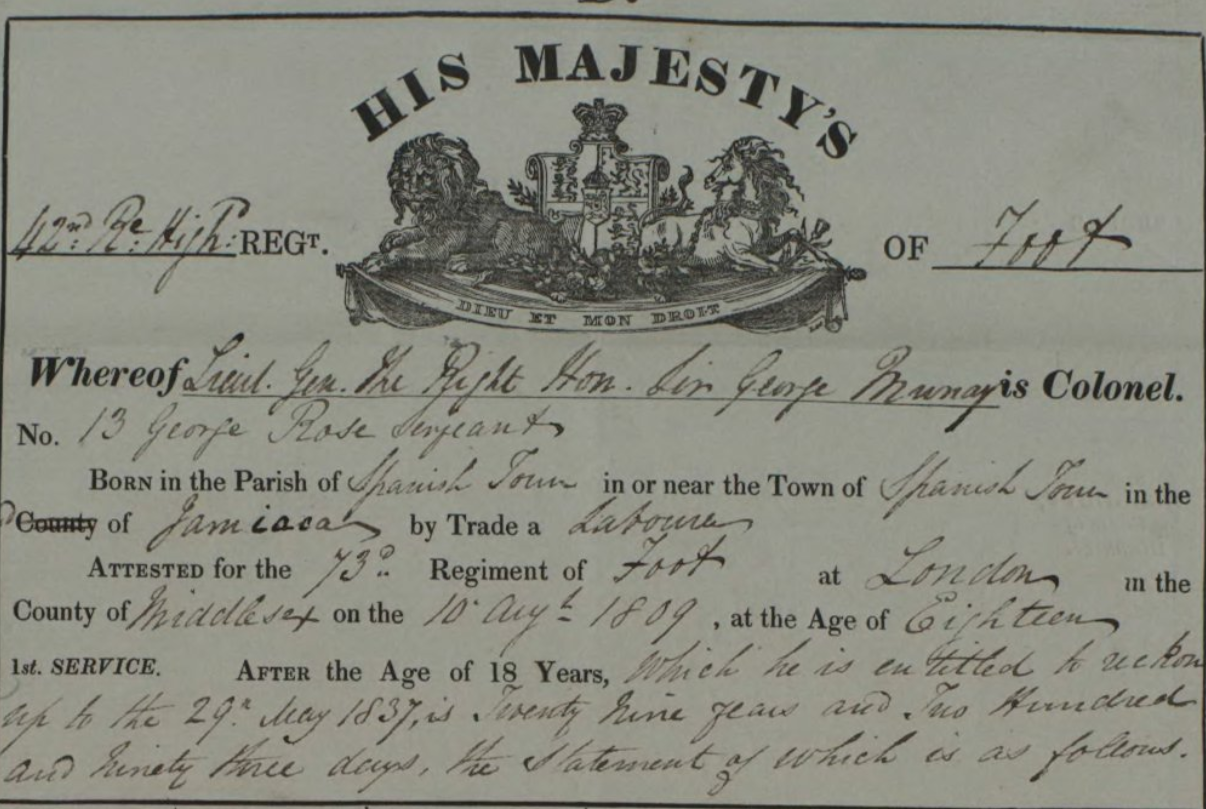 HIS MAJESTY'S
42nd Rl. High: REGT. OF Foot
DIEU ET MON DROIT
Whereof Lieut. Gen. The Right Hon. Sir George Murray is Colonel.
No. 13 George Rose Serjeant
BORN in the Parish of Spanish Town in or near the Town of Spanish Town in the
County of Jamiaca by Trade a Labourer
ATTESTED for the 73d. Regiment of Foot at London in the
County of Middlesex on the 10 Augt 1809, at the Age of Eighteen
1st. SERVICE. AFTER the Age of 18 Years, which he is entitled to reckon
up to the 29th May 1837, is Twenty Nine years and Two Hundred
and Ninety three days, the Statement of which is as follows.